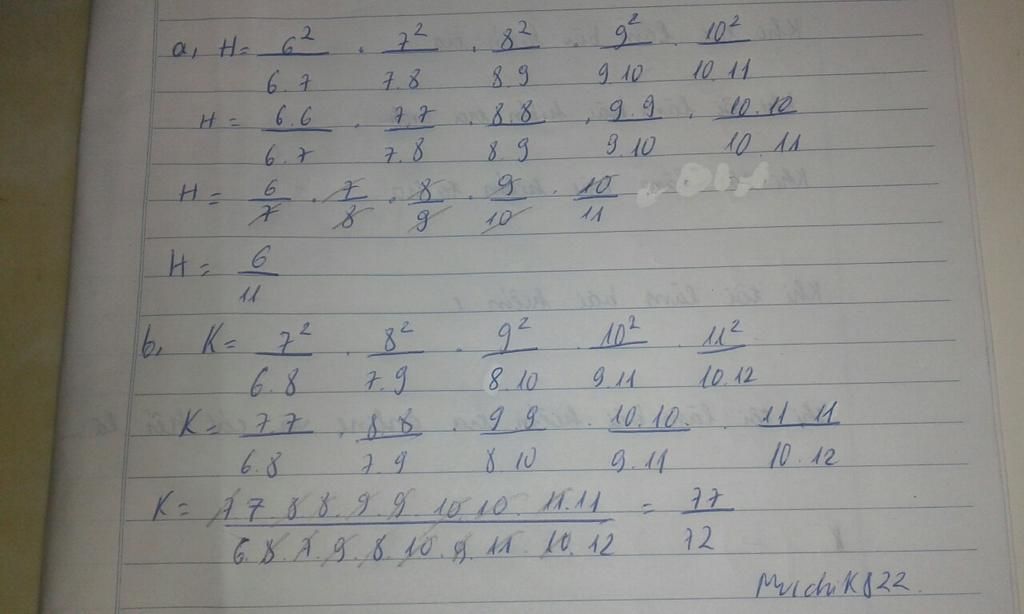 a, H = 6²/6.7 . 7²/7.8 . 8²/8.9 . 9²/9.10 . 10²/10.11
H = 6.6/6.7 . 7.7/7.8 . 8.8/8.9 . 9.9/9.10 . 10.10/10.11
H = 6/7 . 7/8 . 8/9 . 9/10 . 10/11
H = 6/11
b, K = 7²/6.8 . 8²/7.9 . 9²/8.10 . 10²/9.11 . 11²/10.12
K = 7.7/6.8 . 8.8/7.9 . 9.9/8.10 . 10.10/9.11 . 11.11/10.12
K = 7.7.8.8.9.9.10.10.11.11/6.8.7.9.8.10.9.11.10.12 = 77/72